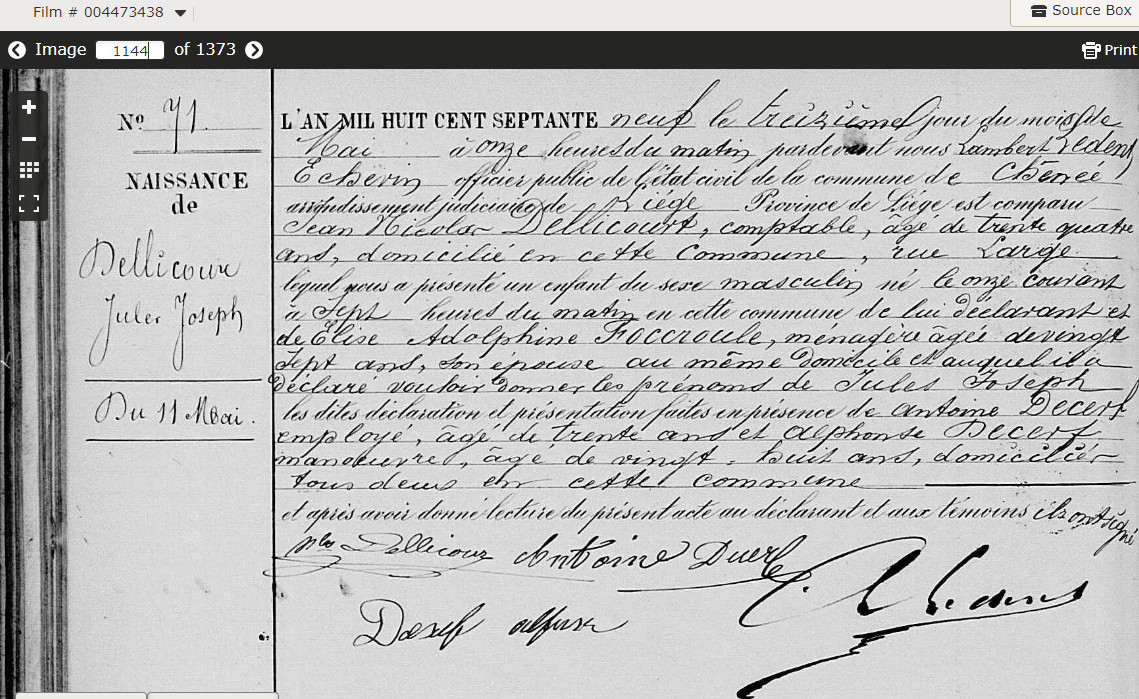 Film # 004473438
Source Box
Image 1144 of 1373
Print
Nº 71.
NAISSANCE
de
Dellicour
Jules Joseph
Du 11 Mai.
L'AN MIL HUIT CENT SEPTANTE neuf le treizième jour du mois de
Mai à onze heures du matin pardevant nous Lambert
Echevin officier public de l'état civil de la commune de Chênée
arrondissement judiciaire de Liége Province de Liége est comparu
Jean Nicolas Dellicourt, comptable, âgé de trente quatre
ans, domicilié en cette Commune, rue Large
lequel nous a présenté un enfant du sexe masculin né le onze courant
à sept heures du matin en cette commune de lui déclarant et
de Elise Adolphine Foccroule, ménagère âgée de vingt
sept ans, son épouse au même domicile et auquel il a
déclaré vouloir donner les prénoms de Jules Joseph
les dites déclaration et présentation faites en présence de Antoine Decerf
employé, âgé de trente ans et Alphonse Decerf
manoeuvre, âgé de vingt-huit ans, domiciliés
tous deux en cette commune
et après avoir donné lecture du présent acte au déclarant et aux témoins ils ont signé
Dellicour Antoine